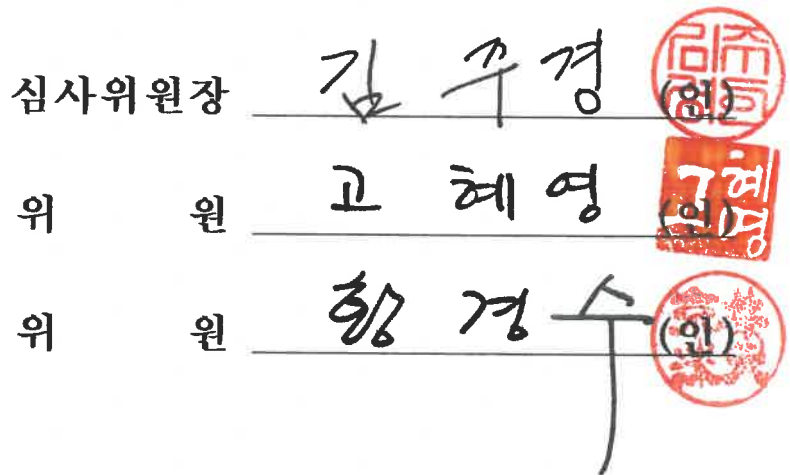 심사위원장 김주경 (인)
위 원 고혜영 (인)
위 원 황경수 (인)